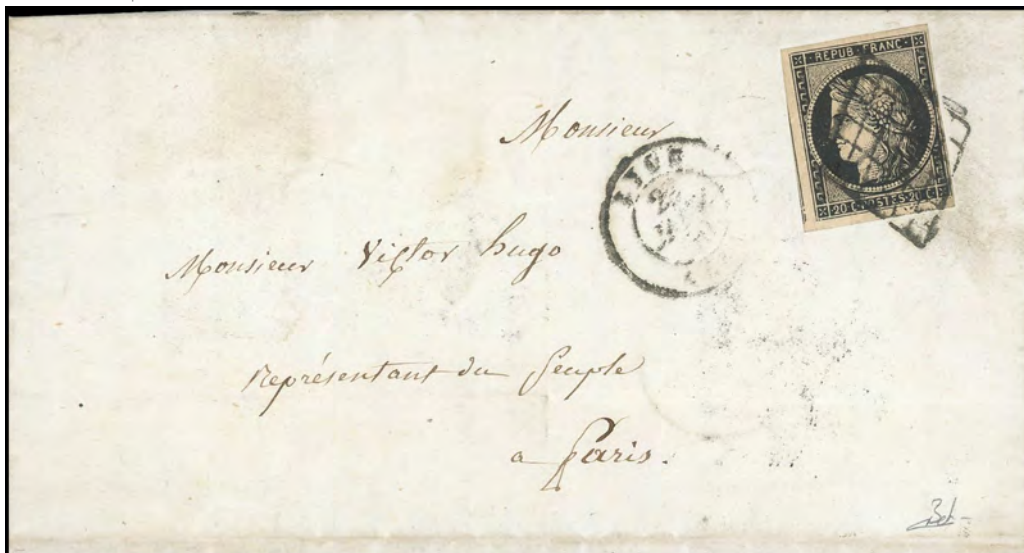 REPUB·FRANC·
20 C·POSTES·20 C
Monsieur
LYON
Monsieur Victor hugo
Représentant du Peuple
a Paris.